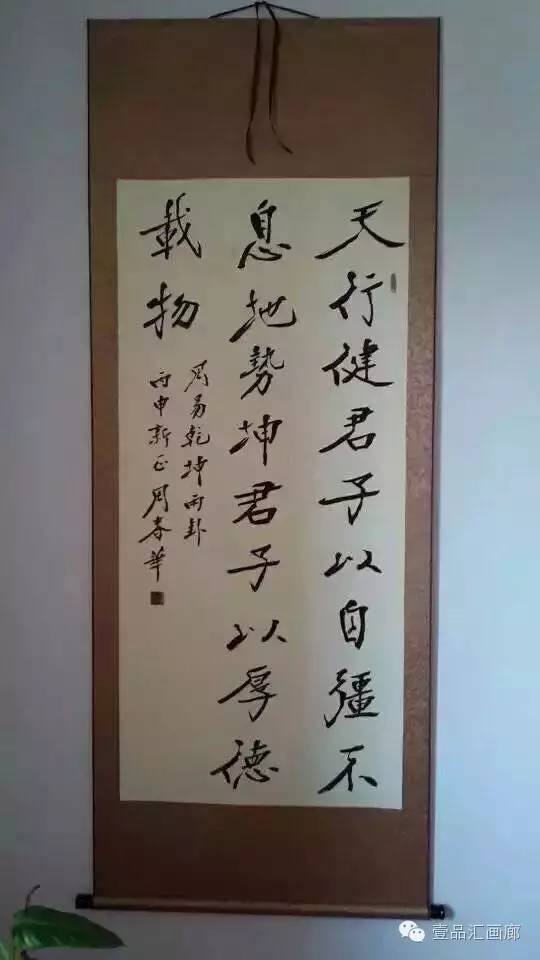 天行健君子以自彊不
息地势坤君子以厚德
載物
周易乾坤两卦
丙申新正周春華
壹品汇画廊